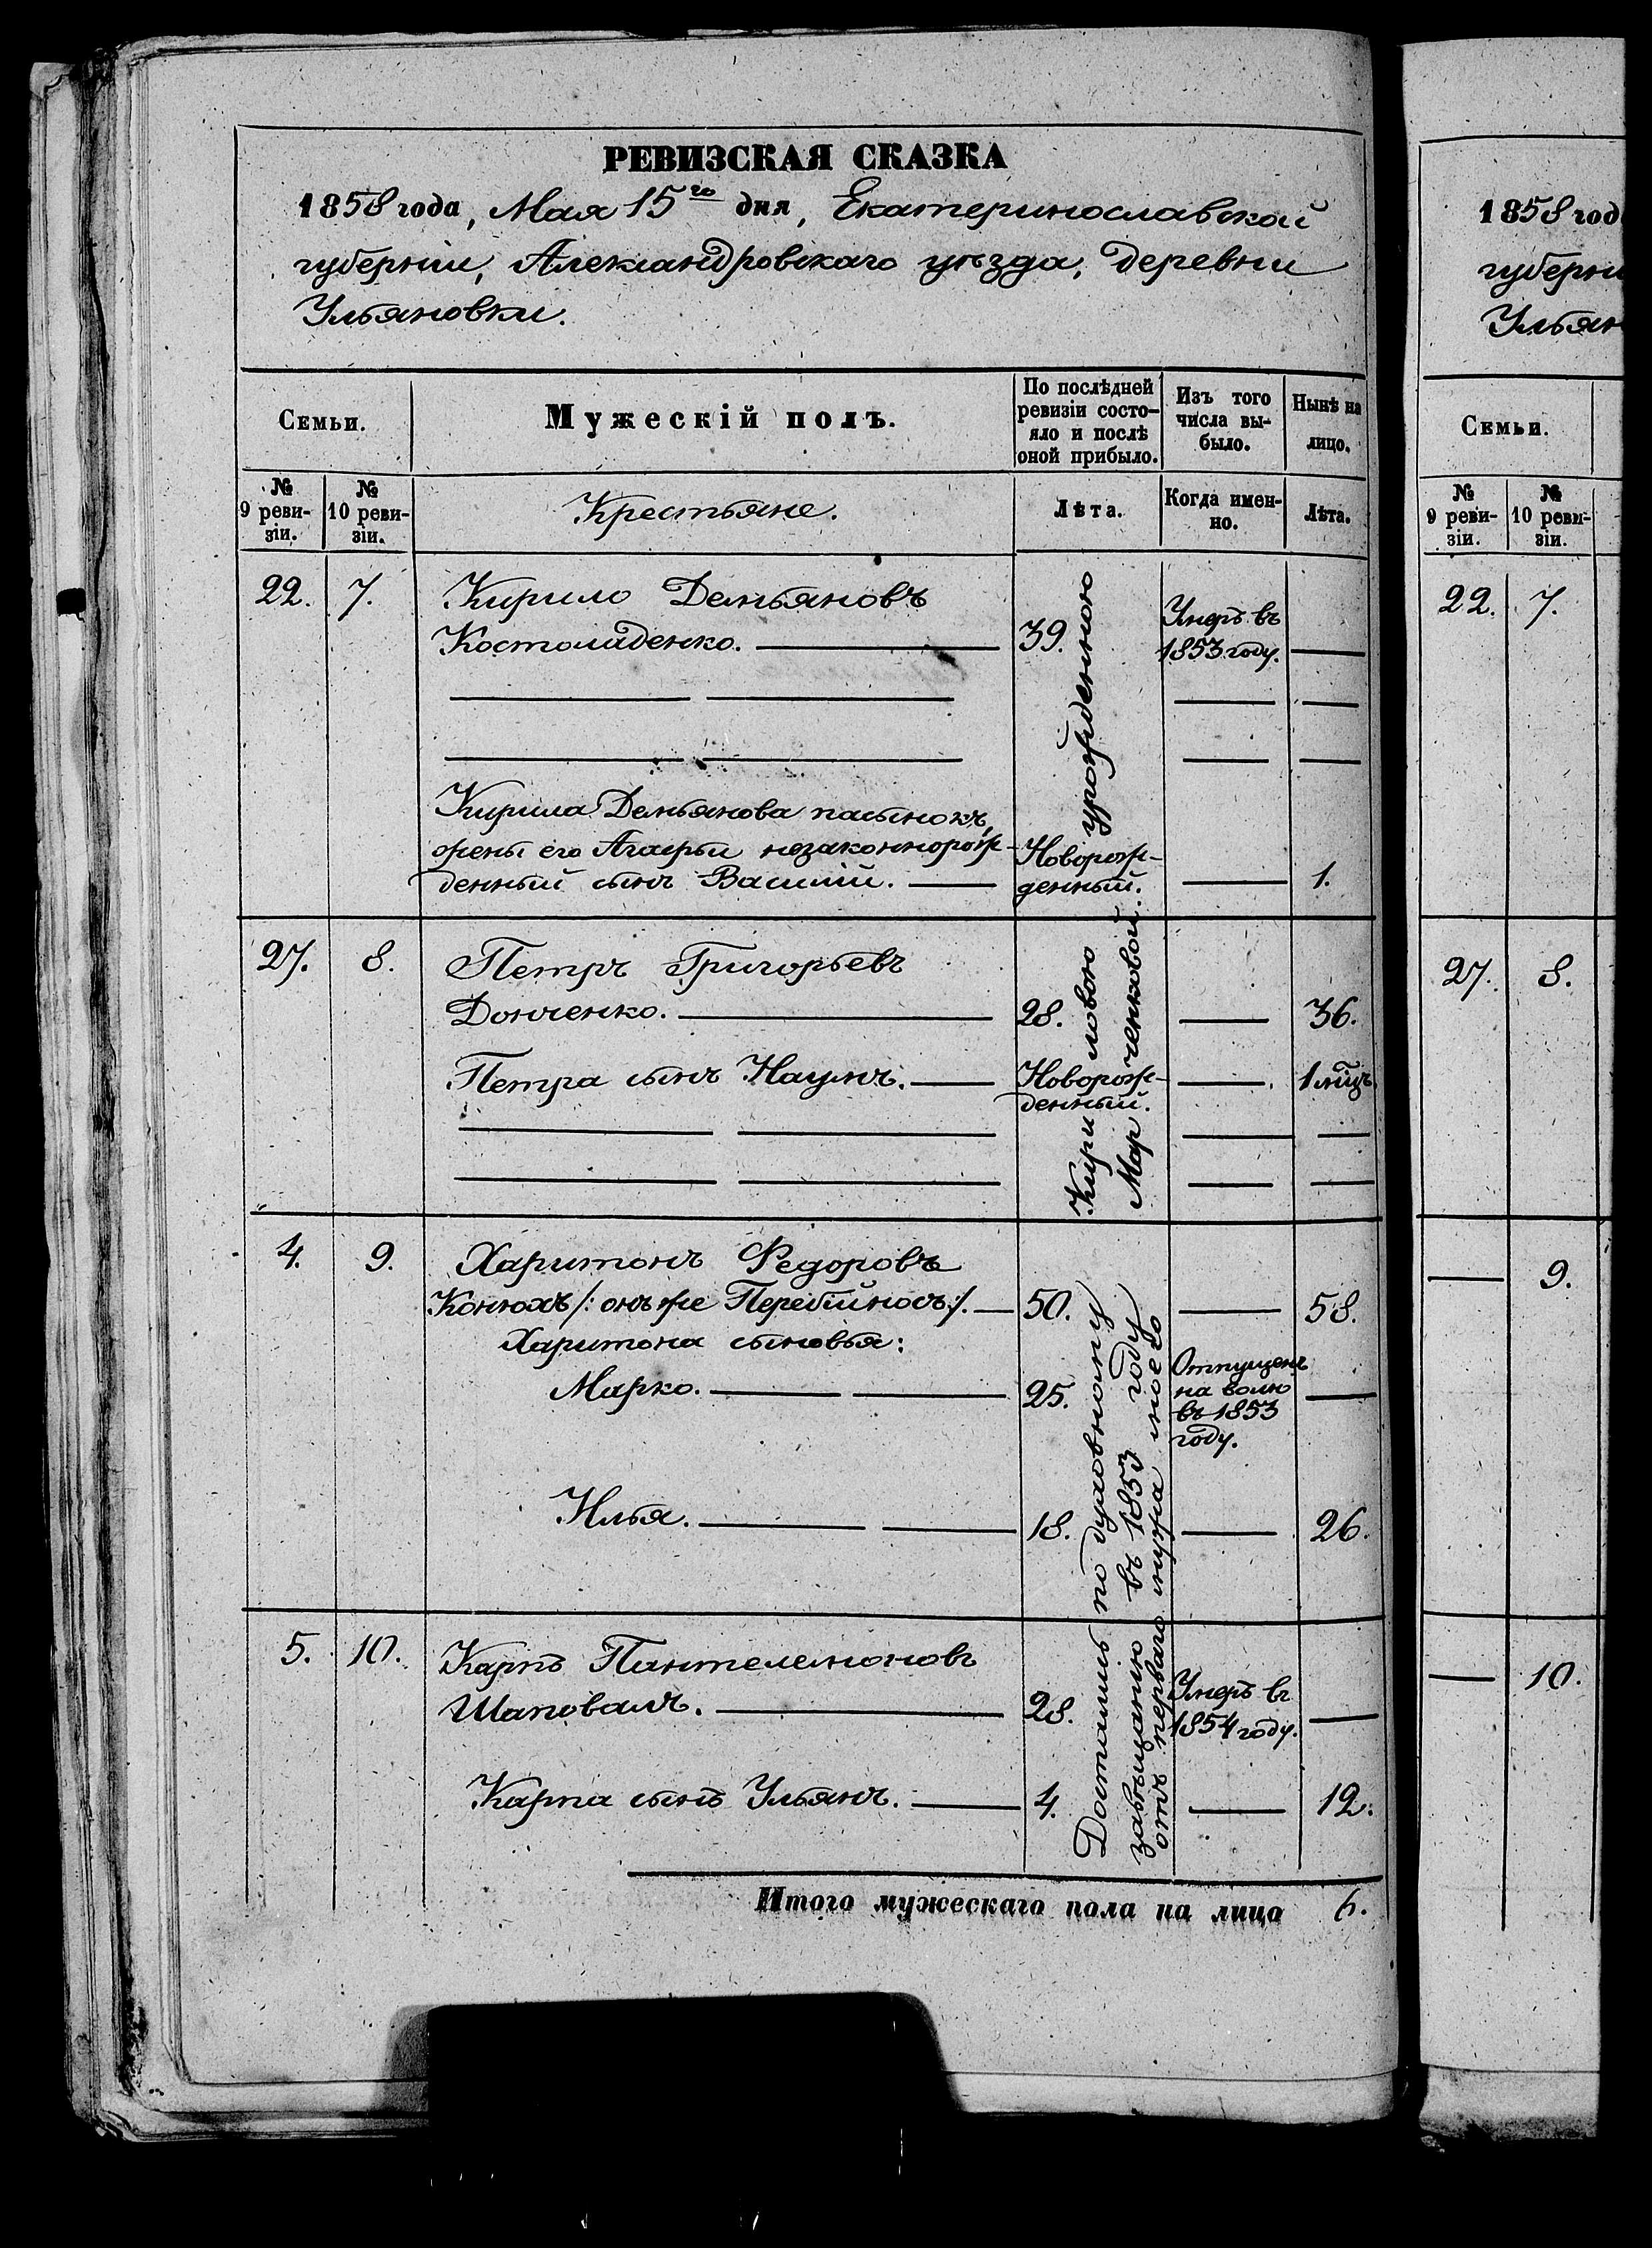 РЕВИЗСКАЯ СКАЗКА
1858 года, Мая 15го дня, Екатеринославской
губерніи, Александровскаго уѣзда, деревни
Ульяновки.
Семьи.
Мужескій полъ.
По послѣдней
ревизіи состо-
яло и послѣ
оной прибыло.
Изъ того
числа вы-
было.
Нынѣ на
лицо.
№
9 реви-
зіи.
№
10 реви-
зіи.
Крестьяне.
Лѣта.
Когда имен-
но.
Лѣта.
22. 7. Кирило Демьяновъ
Костоладенко. 39. Умеръ въ
1853 году.
Кирила Демьянова пасынокъ,
жены его Агафьи незаконнорож-
денный сынъ Василій. Новорож-
денный. 1.
27. 8. Петръ Григорьевъ
Донченко. 28. 36.
Петра сынъ Наумъ. Новорож-
денный. 1 мцъ.
4. 9. Харитонъ Федоровъ
Конюхъ /: онъ же Перебийносъ :/. 50. 58.
Харитона сыновья:
Марко. 25. Отпущенъ
на волю
въ 1853
году.
Илья. 18. 26.
5. 10. Карпъ Пантелемоновъ
Шаповалъ. 28. Умеръ въ
1854 году.
Карпа сынъ Ульянъ. 4. 12.
Достались по духовному
завѣщанію въ 1853 году
отъ перваго мужа моего
Кириловою урожденною
Марченковой.
Итого мужескаго пола на лицо 6.
1858 год
губерні
Ульян
Семьи.
№
9 реви-
зіи.
№
10 реви-
зіи.
22. 7.
27. 8.
9.
10.